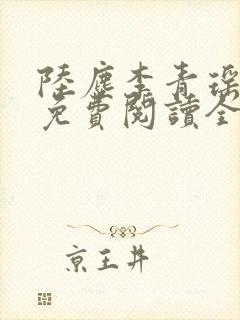 陸塵李青瑤
免費閱讀全
京王井